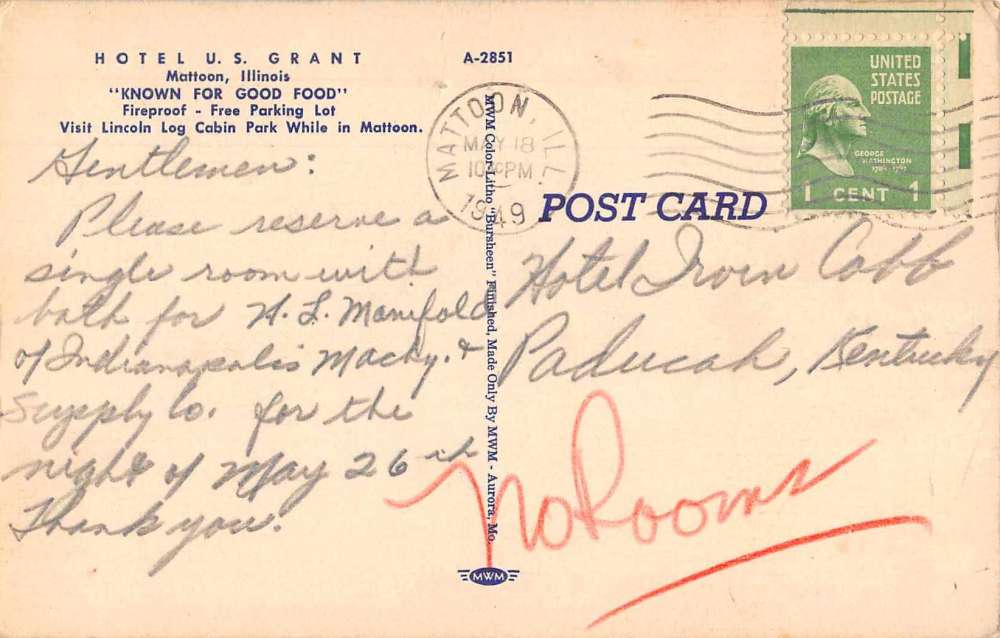 HOTEL U.S. GRANT
Mattoon, Illinois
"KNOWN FOR GOOD FOOD"
Fireproof - Free Parking Lot
Visit Lincoln Log Cabin Park While in Mattoon.
A-2851
Gentlemen:
Please reserve a
single room with
bath for H. L. Manifold
of Indianapolis Machy. &
Supply Co. for the
night of May 26th
Thank you.
MWM Color-Litho "Bursheen" Finished, Made Only By MWM - Aurora, Mo.
MWM
MATTOON, ILL.
MAY 18
PM
1949
UNITED
STATES
POSTAGE
GEORGE
WASHINGTON
1 CENT 1
POST CARD
Hotel Irvin Cobb
Paducah, Kentucky
No Rooms